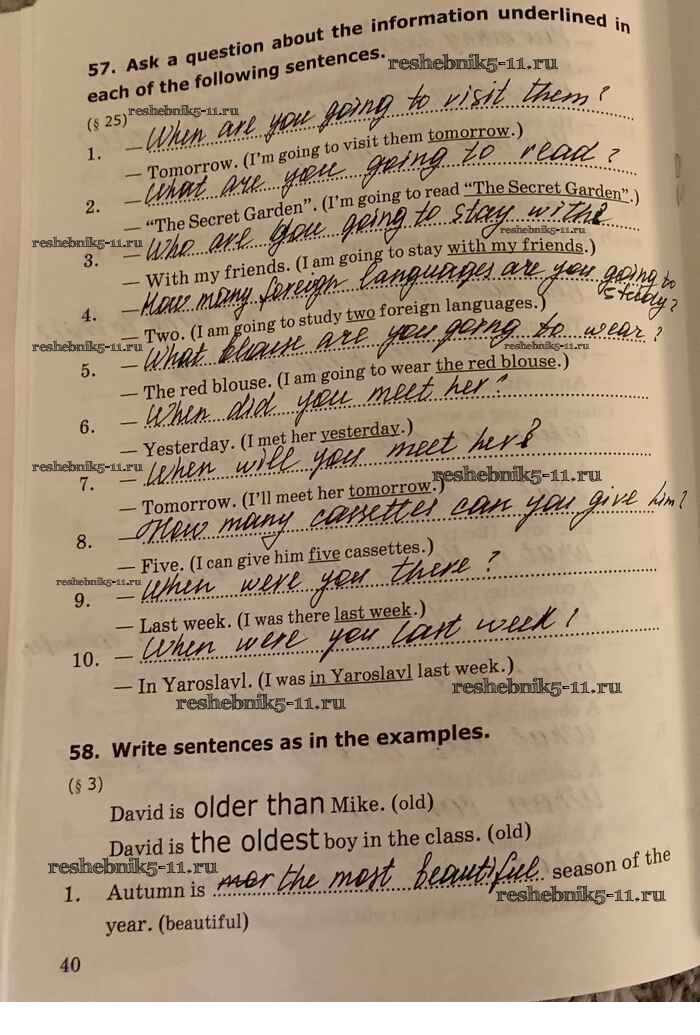 57. Ask a question about the information underlined in
each of the following sentences.
reshebnik5-11.ru
reshebnik5-11.ru
(§ 25)
1. — When are you going to visit them?
— Tomorrow. (I'm going to visit them tomorrow.)
2. — What are you going to read?
— "The Secret Garden". (I'm going to read "The Secret Garden".)
reshebnik5-11.ru
reshebnik5-11.ru
3. — Who are you going to stay with?
— With my friends. (I am going to stay with my friends.)
4. — How many foreign languages are you going to
study?
— Two. (I am going to study two foreign languages.)
reshebnik5-11.ru
reshebnik5-11.ru
5. — What blouse are you going to wear?
— The red blouse. (I am going to wear the red blouse.)
6. — When did you meet her?
— Yesterday. (I met her yesterday.)
reshebnik5-11.ru
reshebnik5-11.ru
7. — When will you meet her?
— Tomorrow. (I'll meet her tomorrow.)
8. — How many cassettes can you give him?
— Five. (I can give him five cassettes.)
reshebnik5-11.ru
9. — When were you there?
— Last week. (I was there last week.)
10. — When were you last week?
— In Yaroslavl. (I was in Yaroslavl last week.)
reshebnik5-11.ru
reshebnik5-11.ru
58. Write sentences as in the examples.
(§ 3)
David is older than Mike. (old)
David is the oldest boy in the class. (old)
reshebnik5-11.ru
1. Autumn is mor the most beautiful season of the
reshebnik5-11.ru
year. (beautiful)
40